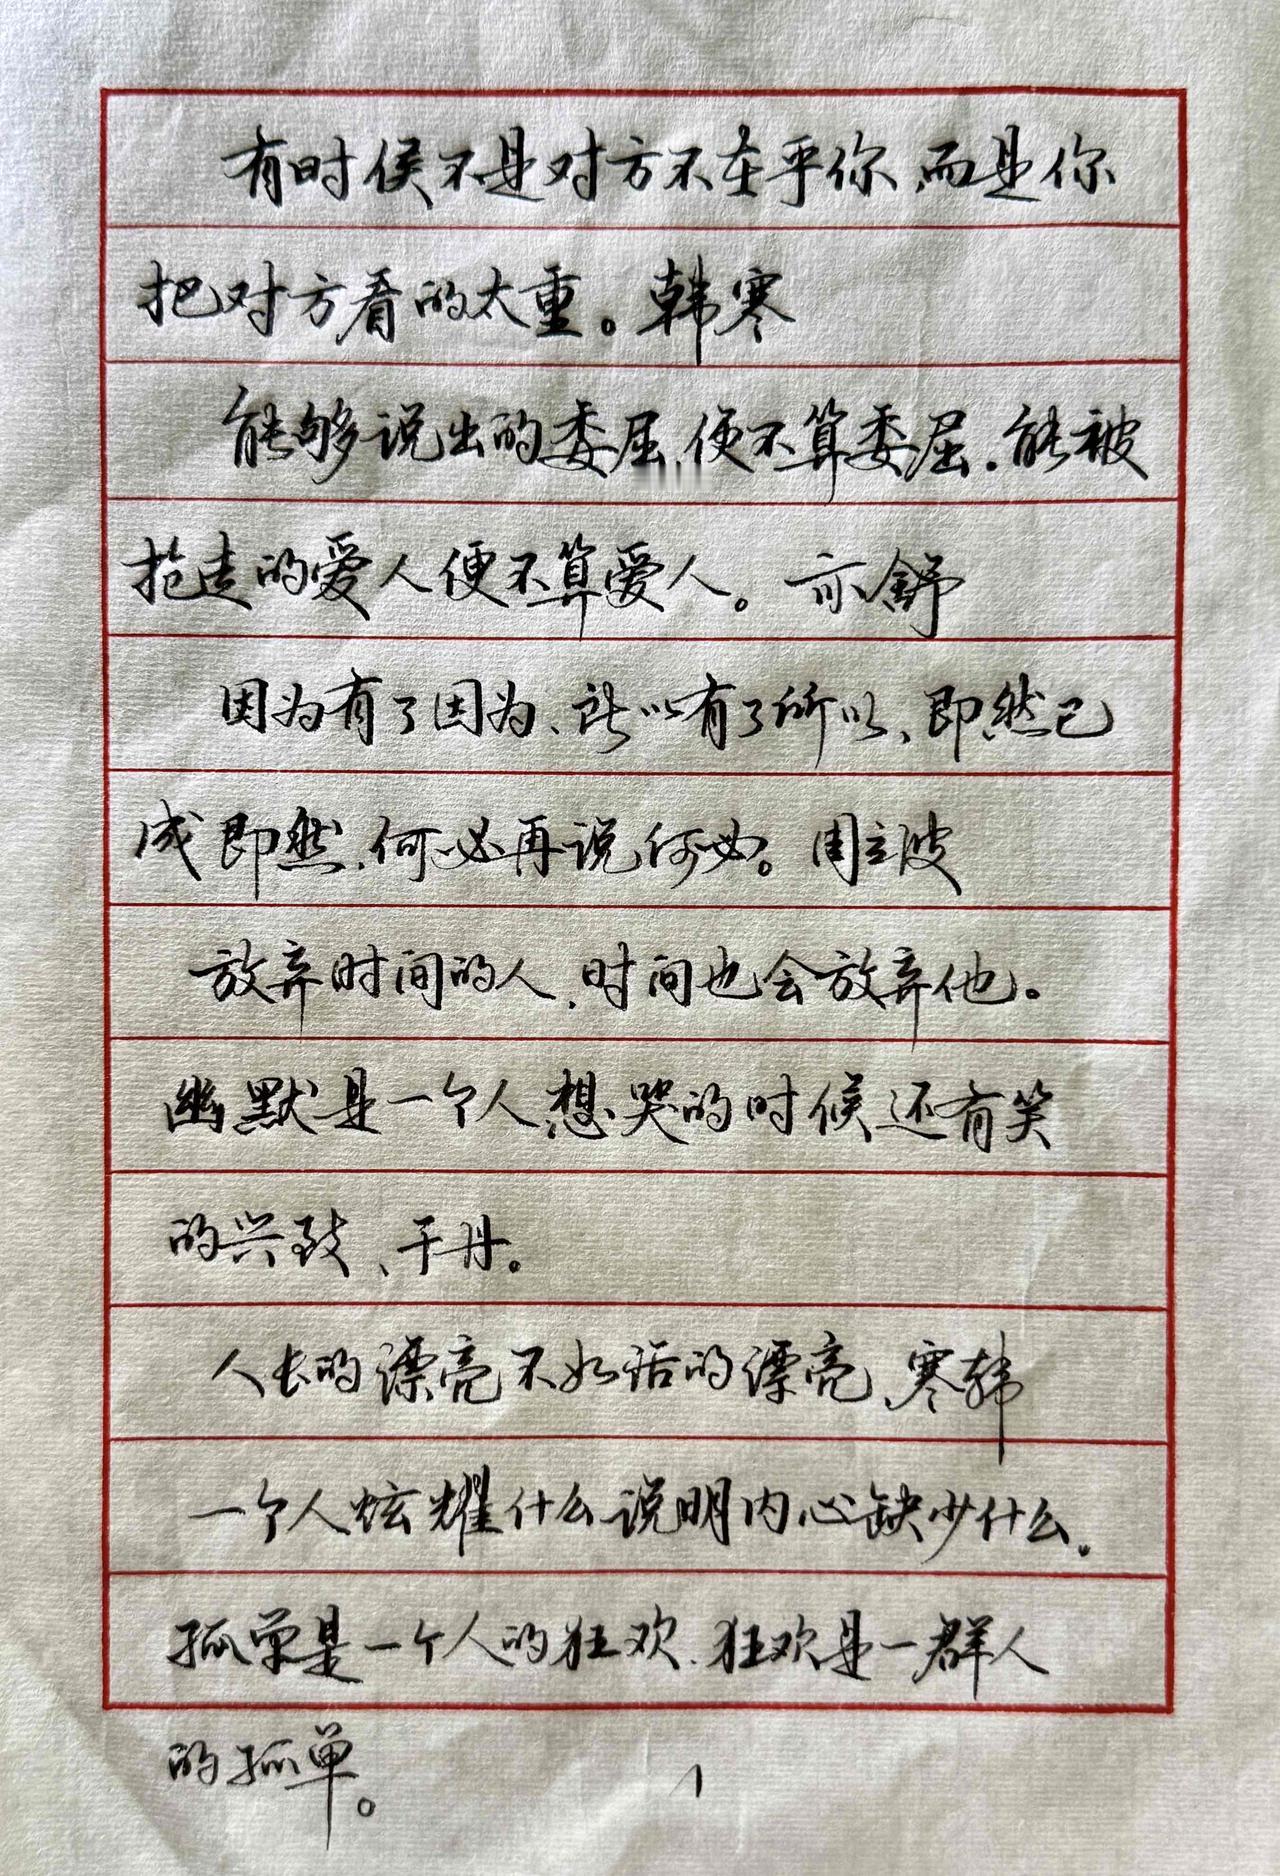 有时侯不是对方不在乎你、而是你
把对方看的太重。韩寒
能够说出的委屈、便不算委屈.能被
抢走的爱人便不算爱人。亦舒
因为有了因为、所以有了所以、即然已
成即然、何必再说何必。周立波
放弃时间的人、时间也会放弃他。
幽默是一个人想哭的时候还有笑
的兴致、于丹。
人长的漂亮不如活的漂亮、寒韩
一个人炫耀什么说明内心缺少什么。
孤单是一个人的狂欢、狂欢是一群人
的孤单。
1